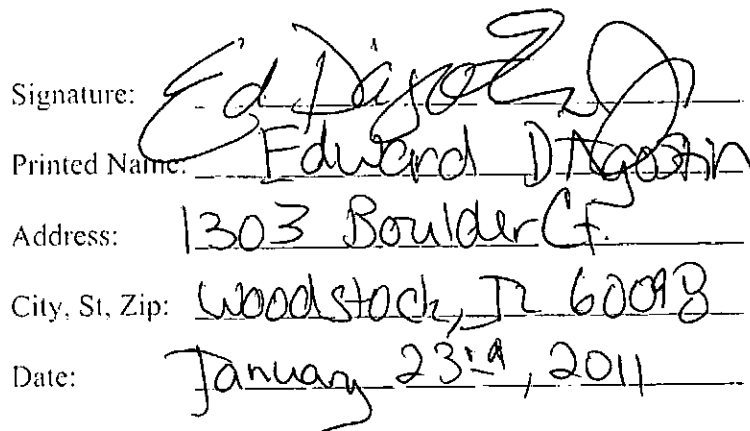 Signature: Ed
Printed Name: Edward D'Agostin
Address: 1303 Boulder Ct.
City, St, Zip: Woodstock, IL 60098
Date: January 23rd, 2011